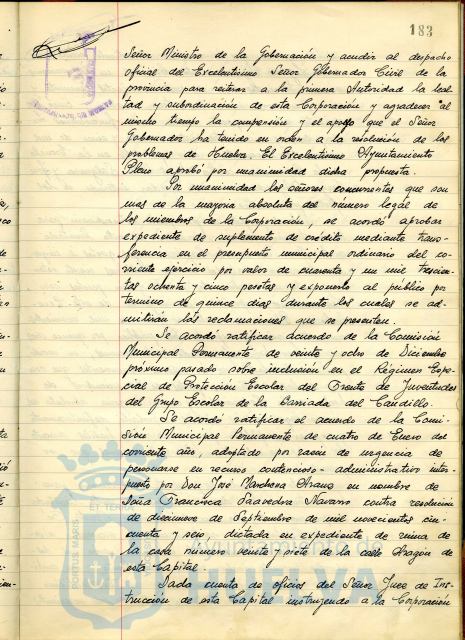 183
Señor Ministro de la Gobernación y acudir al despacho
oficial del Excelentísimo Señor Gobernador Civil de la
provincia para reiterar a la primera Autoridad la leal-
tad y subordinación de esta Corporación y agradecer al
mismo tiempo la comprensión y el apoyo que el Señor
Gobernador ha tenido en orden a la resolución de los
problemas de Huelva. El Excelentísimo Ayuntamiento
Pleno aprobó por unanimidad dicha propuesta.
Por unanimidad los señores concurrentes que son
mas de la mayoria absoluta del número legal de
los miembros de la Corporación, se acordó aprobar
expediente de suplemento de crédito mediante trans-
ferencia en el presupuesto municipal ordinario del co-
rriente ejercicio por valor de cuarenta y un mil trescien-
tas ochenta y cinco pesetas y exponerlo al público por
término de quince dias durante los cuales se ad-
mitirán las reclamaciones que se presenten.
Se acordó ratificar acuerdo de la Comisión
Municipal Permanente de veinte y ocho de Diciembre
próximo pasado sobre inclusión en el Régimen Espe-
cial de Protección Escolar del Frente de Juventudes
del Grupo Escolar de la Barriada del Caudillo.
Se acordó ratificar el acuerdo de la Comi-
sión Municipal Permanente de cuatro de Enero del
corriente año, adoptado por razón de urgencia de
personarse en recurso contencioso-administrativo inter-
puesto por Don José Marchena Arana en nombre de
Doña Francisca Saavedra Navarro contra resolución
de diecinueve de Septiembre de mil novecientos cin-
cuenta y seis, dictada en expediente de ruina de
la casa número veinte y siete de la calle Aragón de
esta Capital.
Dada cuenta de oficios del Señor Juez de Ins-
trucción de esta Capital instruyendo a la Corporación